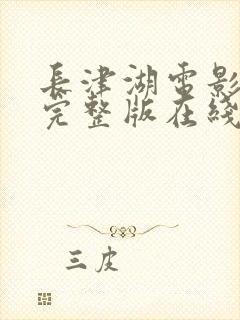 長津湖電影
完整版在綫
三皮